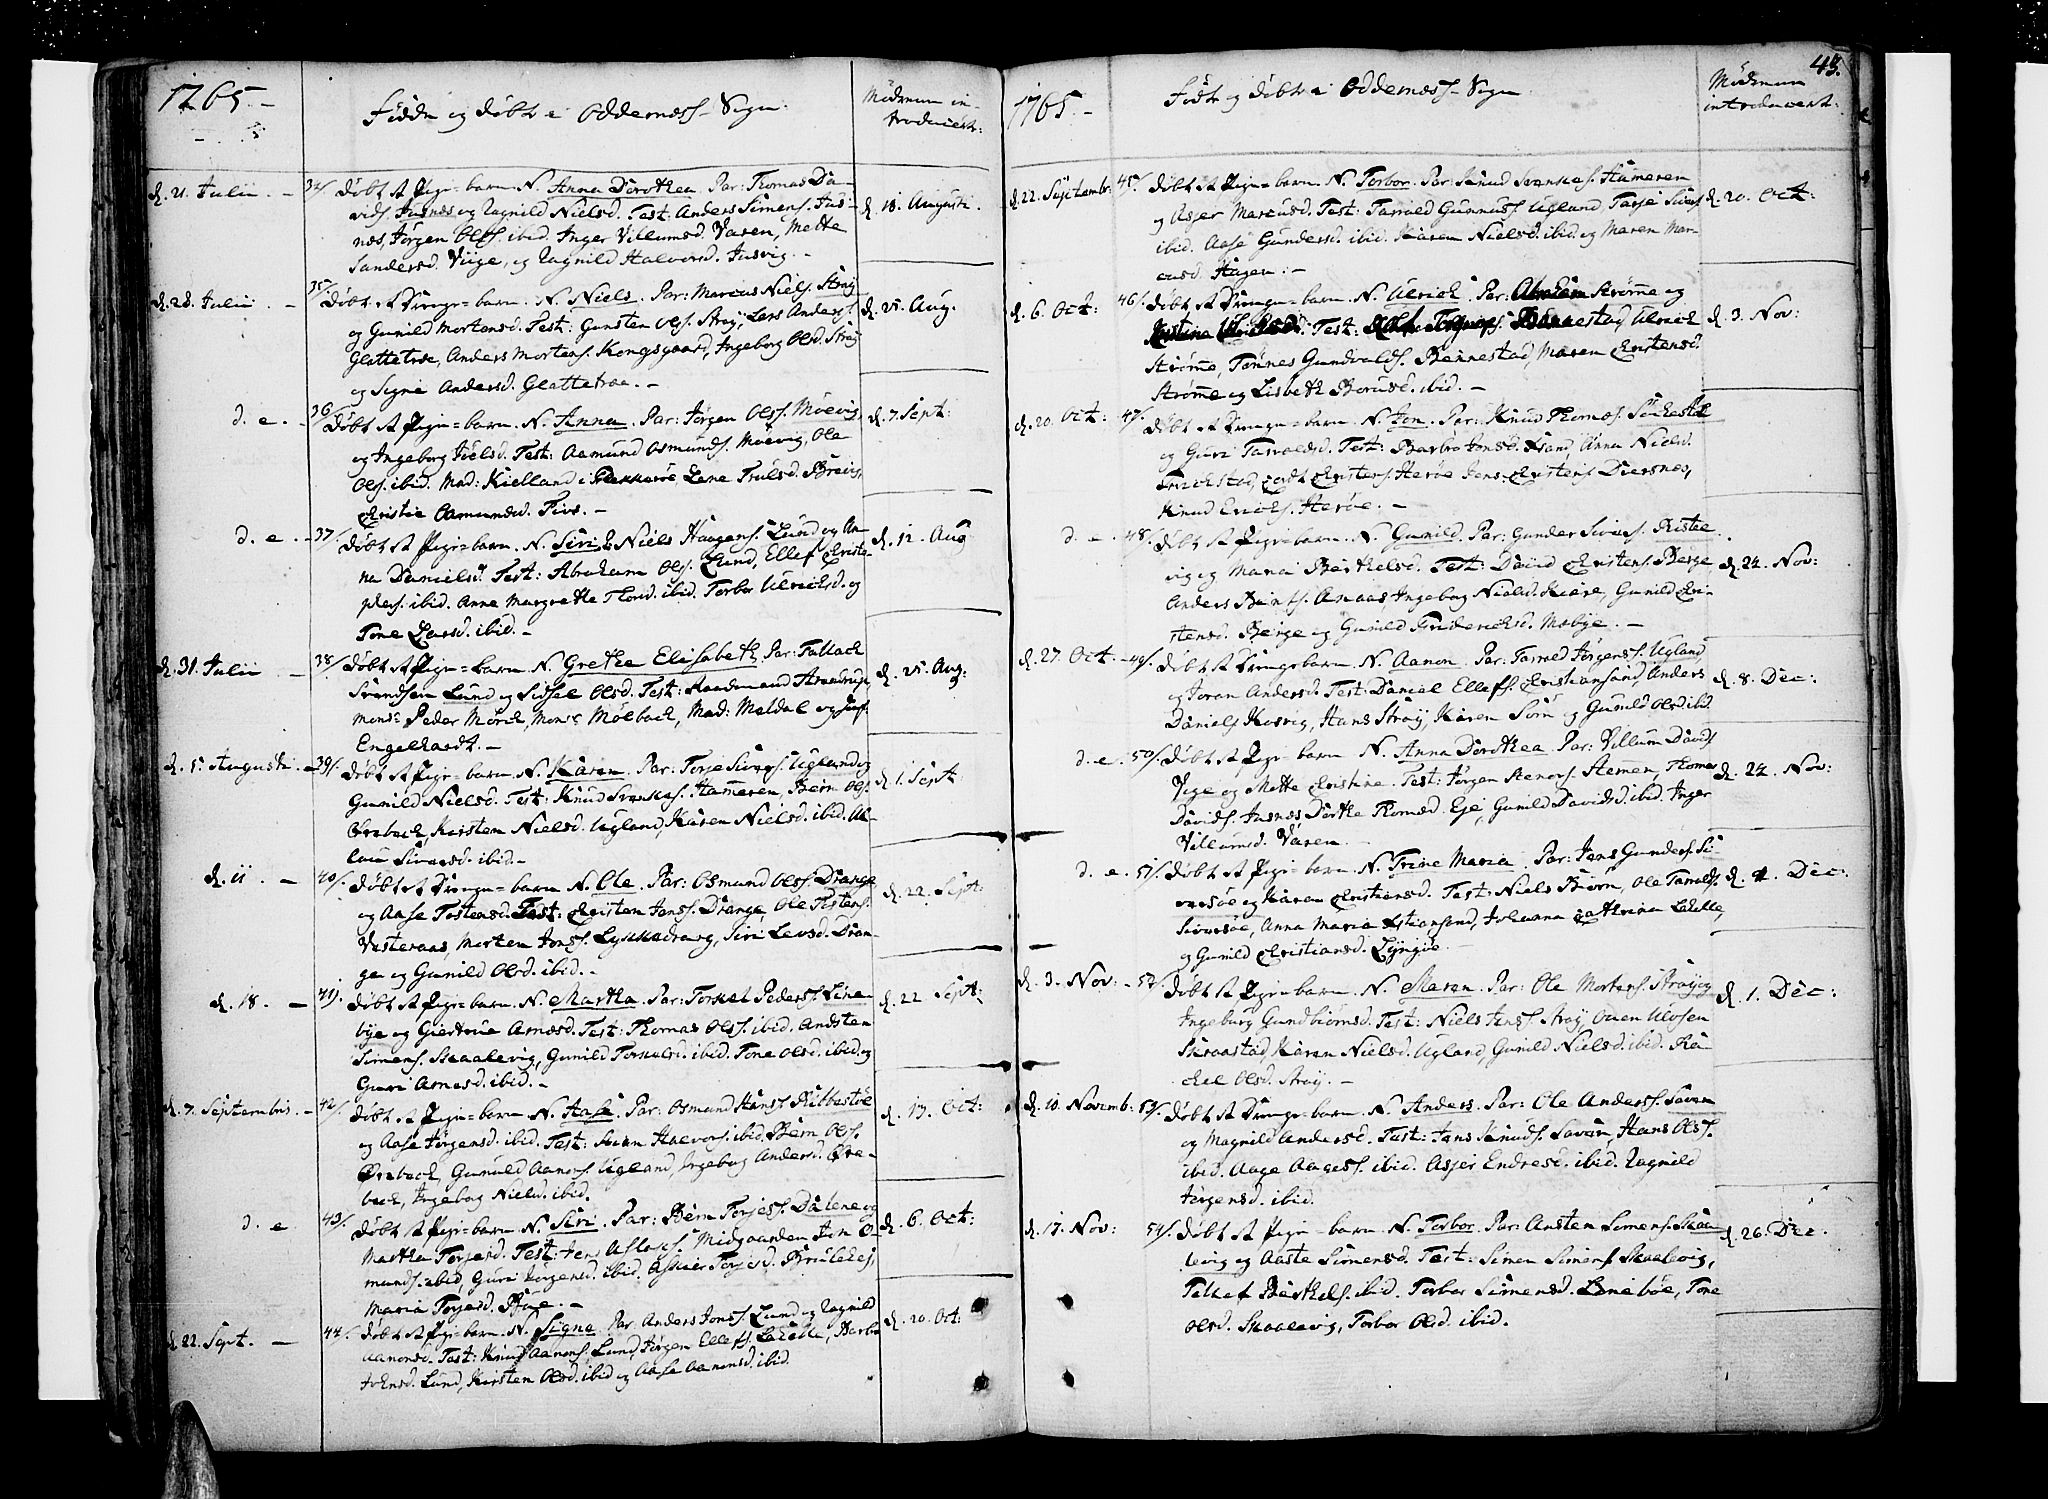 1765.-
Födde og döbte i Oddernæss-Sogn.
Mödrenen in-
troducert:
d. 21. Julii -
34/ Döbt et Pige-barn N. Anna Dorothea. Par: Thomas Da-
vids. Jusnes og Ragnild Nielsd. Test: Anders Simens. Jus-
nes, Jörgen Olss. ibid. Inger Villumsd. Varen, Mette
Sandersd. Viige, og Ragnild Halvorsd. Jusvig.-
d. 18. Augusti.
d. 28. Julii -
35/ Döbt et Drenge-barn N. Niels. Par: Marcus Niels. Straÿ
og Gunild Mortensd. Test: Gunsten Olss. Straÿ, Lars Anders.
Glattetræ, Anders Mortens. Kongsgaard, Ingeborg Olsd. Straÿ
og Signe Andersd. Glattetroe.-
d. 25. Aug.
d. e. -
36/ Döbt et Pige-barn N. Anna. Par: Jörgen Olss. Möevig
og Ingeborg Joelsd. Test: Aamund Osmunds. Möevig, Ole
Olss. ibid. Mad: Kielland i Flekkeröe Lene Trulsd. Brevig,
Christie Aamundsd.
d. 7. Sept:
d. e. -
37/ Döbt et Pige-barn N. Siri. P. Niels Haagens. Lund og An-
na Danielsd. Test: Abraham Olss. Lund, Ellef Christo-
phers. ibid. Anne Margrethe Thord. ibid. Torbor Ulrichsd. og
Tone Larsd. ibid.-
d. 12. Aug
d. 31. Julii -
38/ Döbt et Pige-barn N. Grethe Elisabeth. Par: Tallach
Svendsen Lund og Sidsel Olsd. Test:
Mons: Peder Mörch, Mons: Mölbach, Mad: Meldal og
Engelhardt.-
d. 25. Aug:
d. 5. Augusti. -
39/ Döbt et Pige-barn N. Karen. Par: Torje Sivers. Ugland og
Gunild Nielsd. Test: Knud Svenkes. Hameren, Biörn Olss.
Örebech, Kirsten Nielsd. Ugland, Karen Nielsd. ibid.
Siversd. ibid.-
d. 1. Sept
d. 11. -
40/ Döbt et Drenge-barn N. Ole. Par: Osmund Olss. Drange
og Aase Tostensd. Test: Christen Jenss. Drange, Ole Tostens.
Vesteraas, Morten Jonss. Siri Levsd. Dran-
ge og Gunild Olsd. ibid.-
d. 22. Sept:
d. 18. -
41/. Döbt et Pige-barn N. Martha. Par: Torkel Peders. Line-
bye og Giertrue Arnesd. Test: Thomas Olss. ibid. Andsten
Simens. Skaalevig, Gunild Torkelsd. ibid. Tone Olsd. ibid. og
Guri Arnesd. ibid.-
d. 22 Sept:
d. 7. Septembris. -
42/. Döbt et Pige-barn N. Aase. Par: Osmund Hanss. Kibbestöe
og Aase Jörgensd. ibid. Test: Halvors. ibid. Biörn Olss.
Örebech, Gunuld Aanons. Ugland, Ingebog Andersd. Öre-
bech, Ingebog Nielsd. ibid.
d. 13. Oct:
d. e
43/. Döbt et Pige-barn N. Siri. Par: Biörn Torjess. Dalene og
Martha Torjesd. Test: Jens Aslags. Midgaarden Jon O-
munds. ibid, Guri Jörgensd. ibid. Torjesd.
Maria Torjesd. -
d. 6. Oct:
d. 22. Sept. -
44/. Döbt et Pige-barn N. Signe. Par. Anders Jons. Lund og Ragnild
Aanonsd. Test: Knud Aanons. Lund, Jörgen Ellefs. Lahelle,
Lund, Kirsten Olsd. ibid og Aase Aanonsd. ibid.
d. 20. Oct:
43.
1765.-
Födte og döbte i Oddernæss-Sogn
Mödrenen
introducert:
d. 22. Septembr:
45/. Döbt et Pige-barn N. Torbor. Par: Knud Svenkes. Hameren
og Asjer Marcusd. Test: Tarrald Gunnufs. Ugland, Torje Sivers.
ibid. Aase Gundersd. ibid. Karen Nielsd. ibid. og Maren Mar-
cusd. Haagen.-
d. 20. Oct:
d. 6. Oct:
46/. Döbt et Drenge-barn N. Ulrich. Par: Abraham Strömme og
Test: Bennestad, Ulrich
Strömme, Tönnes Gundvalds. Bennestad, Maren Christensd.
Strömme og Lisbeth ibid.-
d. 3. Nov:
d. 20. Oct:
47/. Döbt et Drenge-barn N. Jon. Par: Knud Thomæs.
og Guri Tarvaldsd. Test: Barbro Jonsd. Anna Nielsd.
Christens. Heröe Jens Christens. Dversnes,
Knud Erichs. Heröe.-
d. e.
48/. Döbt et Pige-barn N. Gunild. Par: Gunder Sivers.
vig og Maria Berthelsd. Test: David Christens. Berge
Anders Ingebog Nielsd. Kiære, Gunild Chri-
stensd. Berge og Gunild Friderichsd. Mobye.-
d. 24. Nov:
d. 27. Oct. -
49/. Döbt et Drengebarn N. Aanon. Par: Tarrald Jörgens. Ugland
og Joran Andersd. Test: Daniel Ellefs. Christiansand, Anders
Daniels. Kosvig, Hans Straÿ, Karen og Gunild Olsd ibid.
d. 8. Dec:
d. e.
50/. Döbt et Pige-barn N. Anna Dorothea. Par: Villum Davids.
Vige og Mette Christine. Test: Jörgen Stenors. Stemen, Thomas
Davids. Jusnes Dorthe Thomæd. Eje, Gunild Davidsd. ibid. Inger
Villumsd. Varen.-
d. 24. Nov:
d. e.
51/. Döbt et Pige-barn N. Trine Maria. Par: Jens Gunders. Si-
versöe og Karen Christensd. Test: Niels Biörn, Ole Tarralds.
Siversöe, Anna Maria Johanna Cathrina Lahelle,
og Gunild Christiansd.
d. 1. Dec:
d. 3. Nov: -
52/. Döbt et Pige-barn N. Maren. Par: Ole Mortens. Straÿ og
Ingeborg Gundbiörnsd. Test: Niels Jenss. Straÿ, Ouen Mosen
Skraastad, Karen Nielsd. Ugland, Gunild Nielsd. ibid. Ra-
chel Olsd. Straÿ.-
d. 1. Dec:
d. 10. Novemb:
53/. Döbt et Drenge-barn N. Anders. Par: Ole Anderss. Saven
og Magnild Andersd. Test: Jens Knuds. Saven, Hans Olss.
ibid. Aage Aagess. ibid. Asjer Endresd. ibid. Ragnild
Jörgensd. ibid.
d. 17. Nov:
54/. Döbt et Pige-barn N. Torbor. Par: Ansten Simens. Skaa-
levig og Aaste Simensd. Test: Simen Simens. Skaalevig,
Tellef Berthels. ibid. Torbor Simensd. Lineböe, Tone
Olsd. Skaalevig, Torbor Olsd. ibid.
d. 26. Dec.